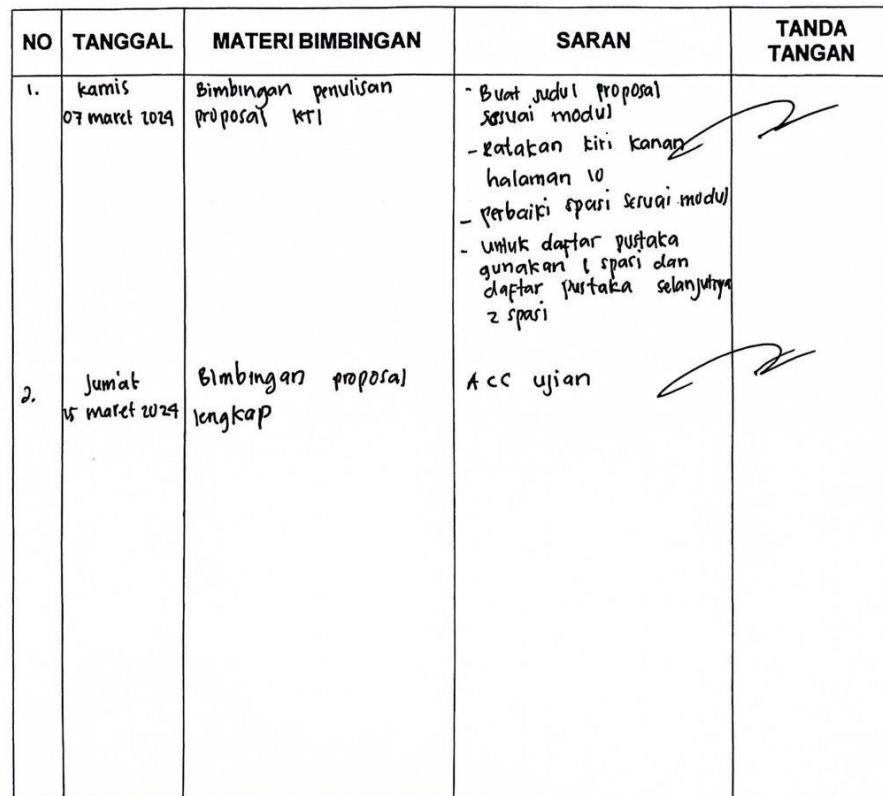 NO TANGGAL MATERI BIMBINGAN SARAN TANDA TANGAN
1.
kamis
07 maret 2024
Bimbingan penulisan
proposal KTI
- Buat judul proposal
sesuai modul
- Ratakan kiri kanan
halaman 10
- perbaiki spasi sesuai modul
- untuk daftar pustaka
gunakan 1 spasi dan
daftar pustaka selanjutnya
2 spasi
2.
Jum'at
15 maret 2024
Bimbingan proposal
lengkap
ACC ujian